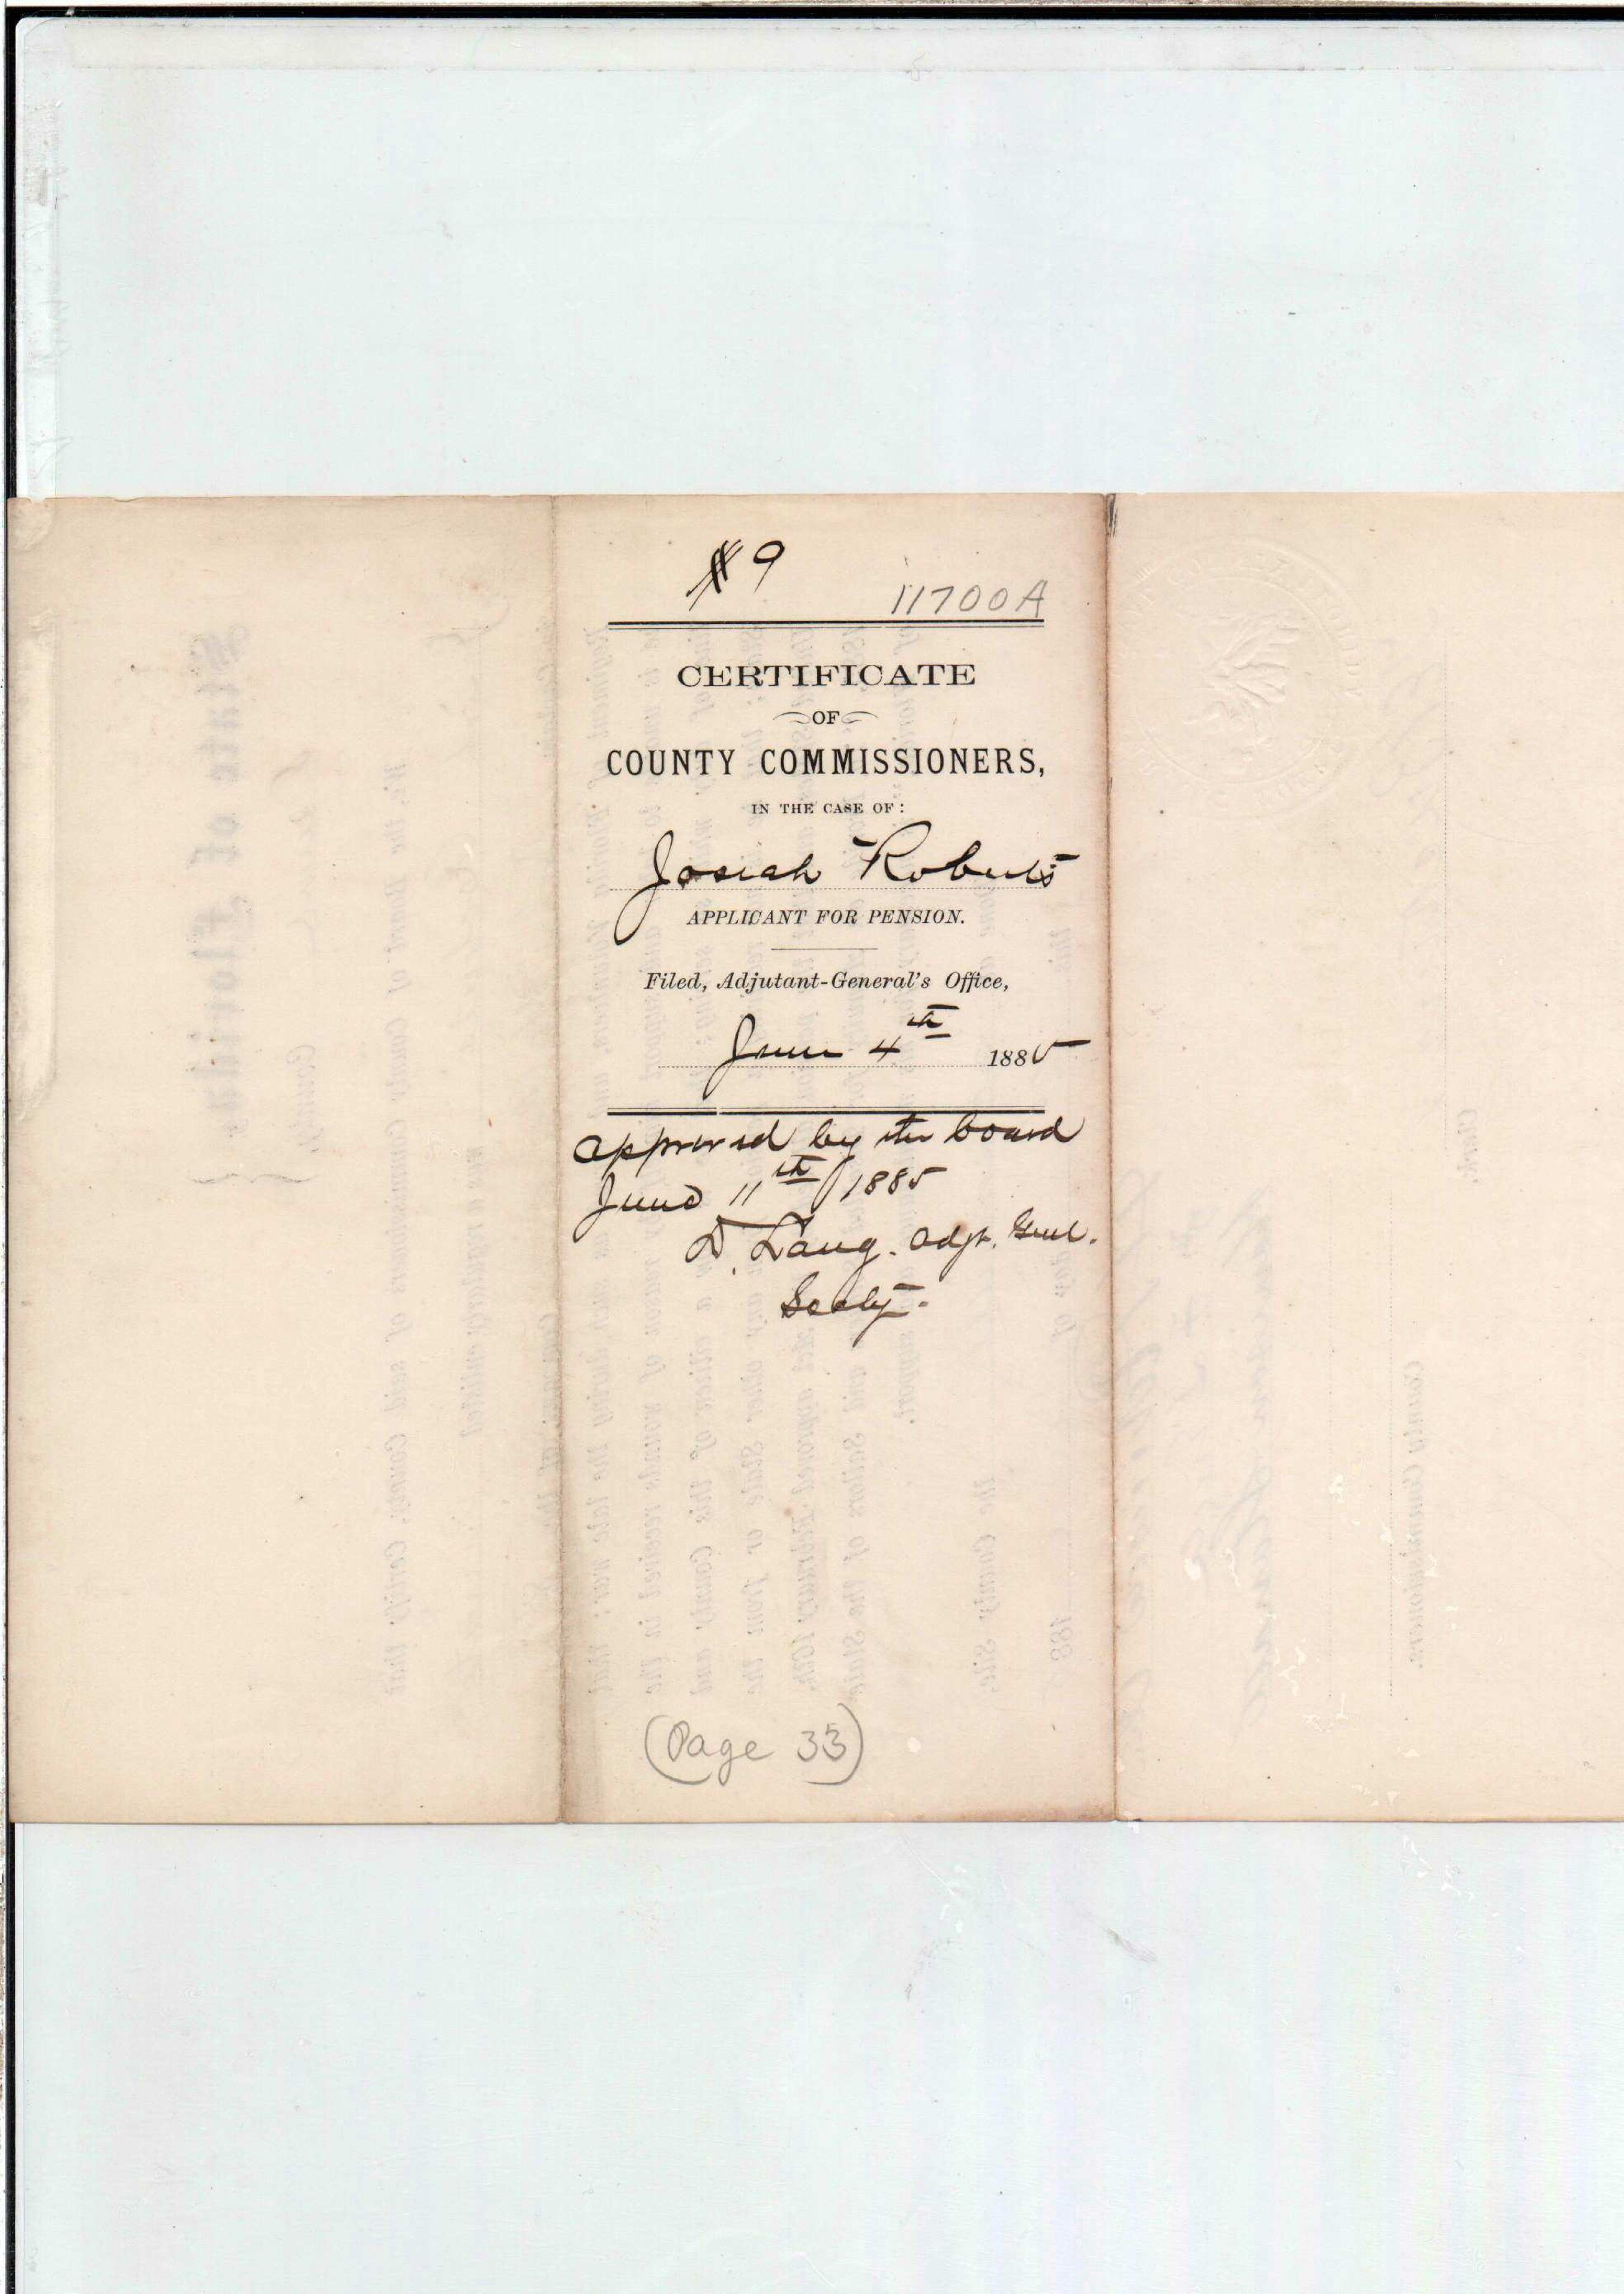 #9
11700A
CERTIFICATE
OF
COUNTY COMMISSIONERS,
IN THE CASE OF:
Josiah Roberts
APPLICANT FOR PENSION.
Filed, Adjutant-General's Office,
June 4th 1885
approved by the board
June 11th/1885
D. Lang. Adjt. Genl.
Secty.
(Page 33)